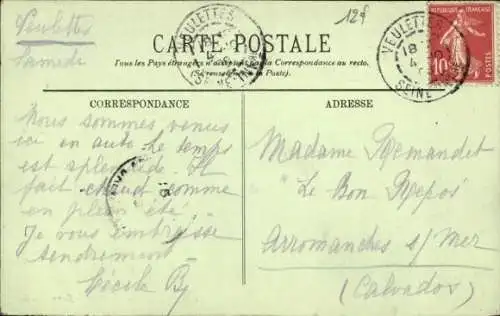 Veulettes
Samedi
12f
VEULETTES
SEINE-INF
CARTE POSTALE
Tous les Pays étrangers n'acceptent pas la Correspondance au recto.
(Se renseigner à la Poste).
VEULETTES
18
4
SEINE
RÉPUBLIQUE FRANÇAISE
10
POSTES
CORRESPONDANCE
Nous sommes venus
ici en auto. Le temps
est splendide. Il
fait chaud comme
en plein été.
Je vous embrasse
tendrement
Cécile
ADRESSE
Madame Remandet
Le Bon Repos
Arromanches s/ Mer
(Calvados)